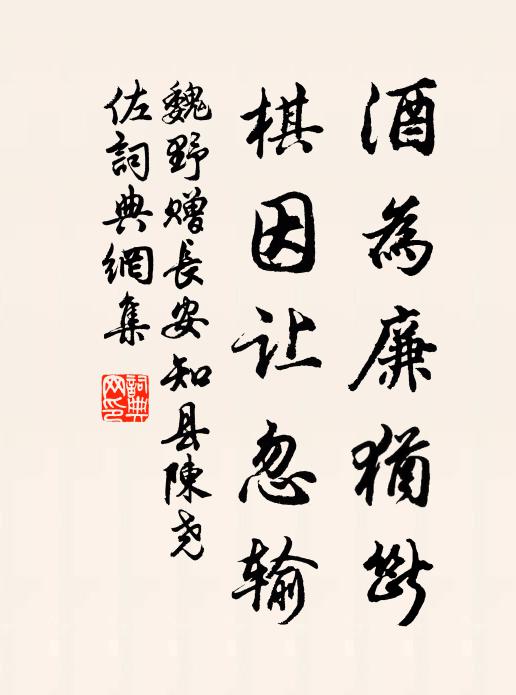 酒為廉猶斷
棋因让忽输
魏野赠長安知县陳尧
佐詞典網集
詞典網印